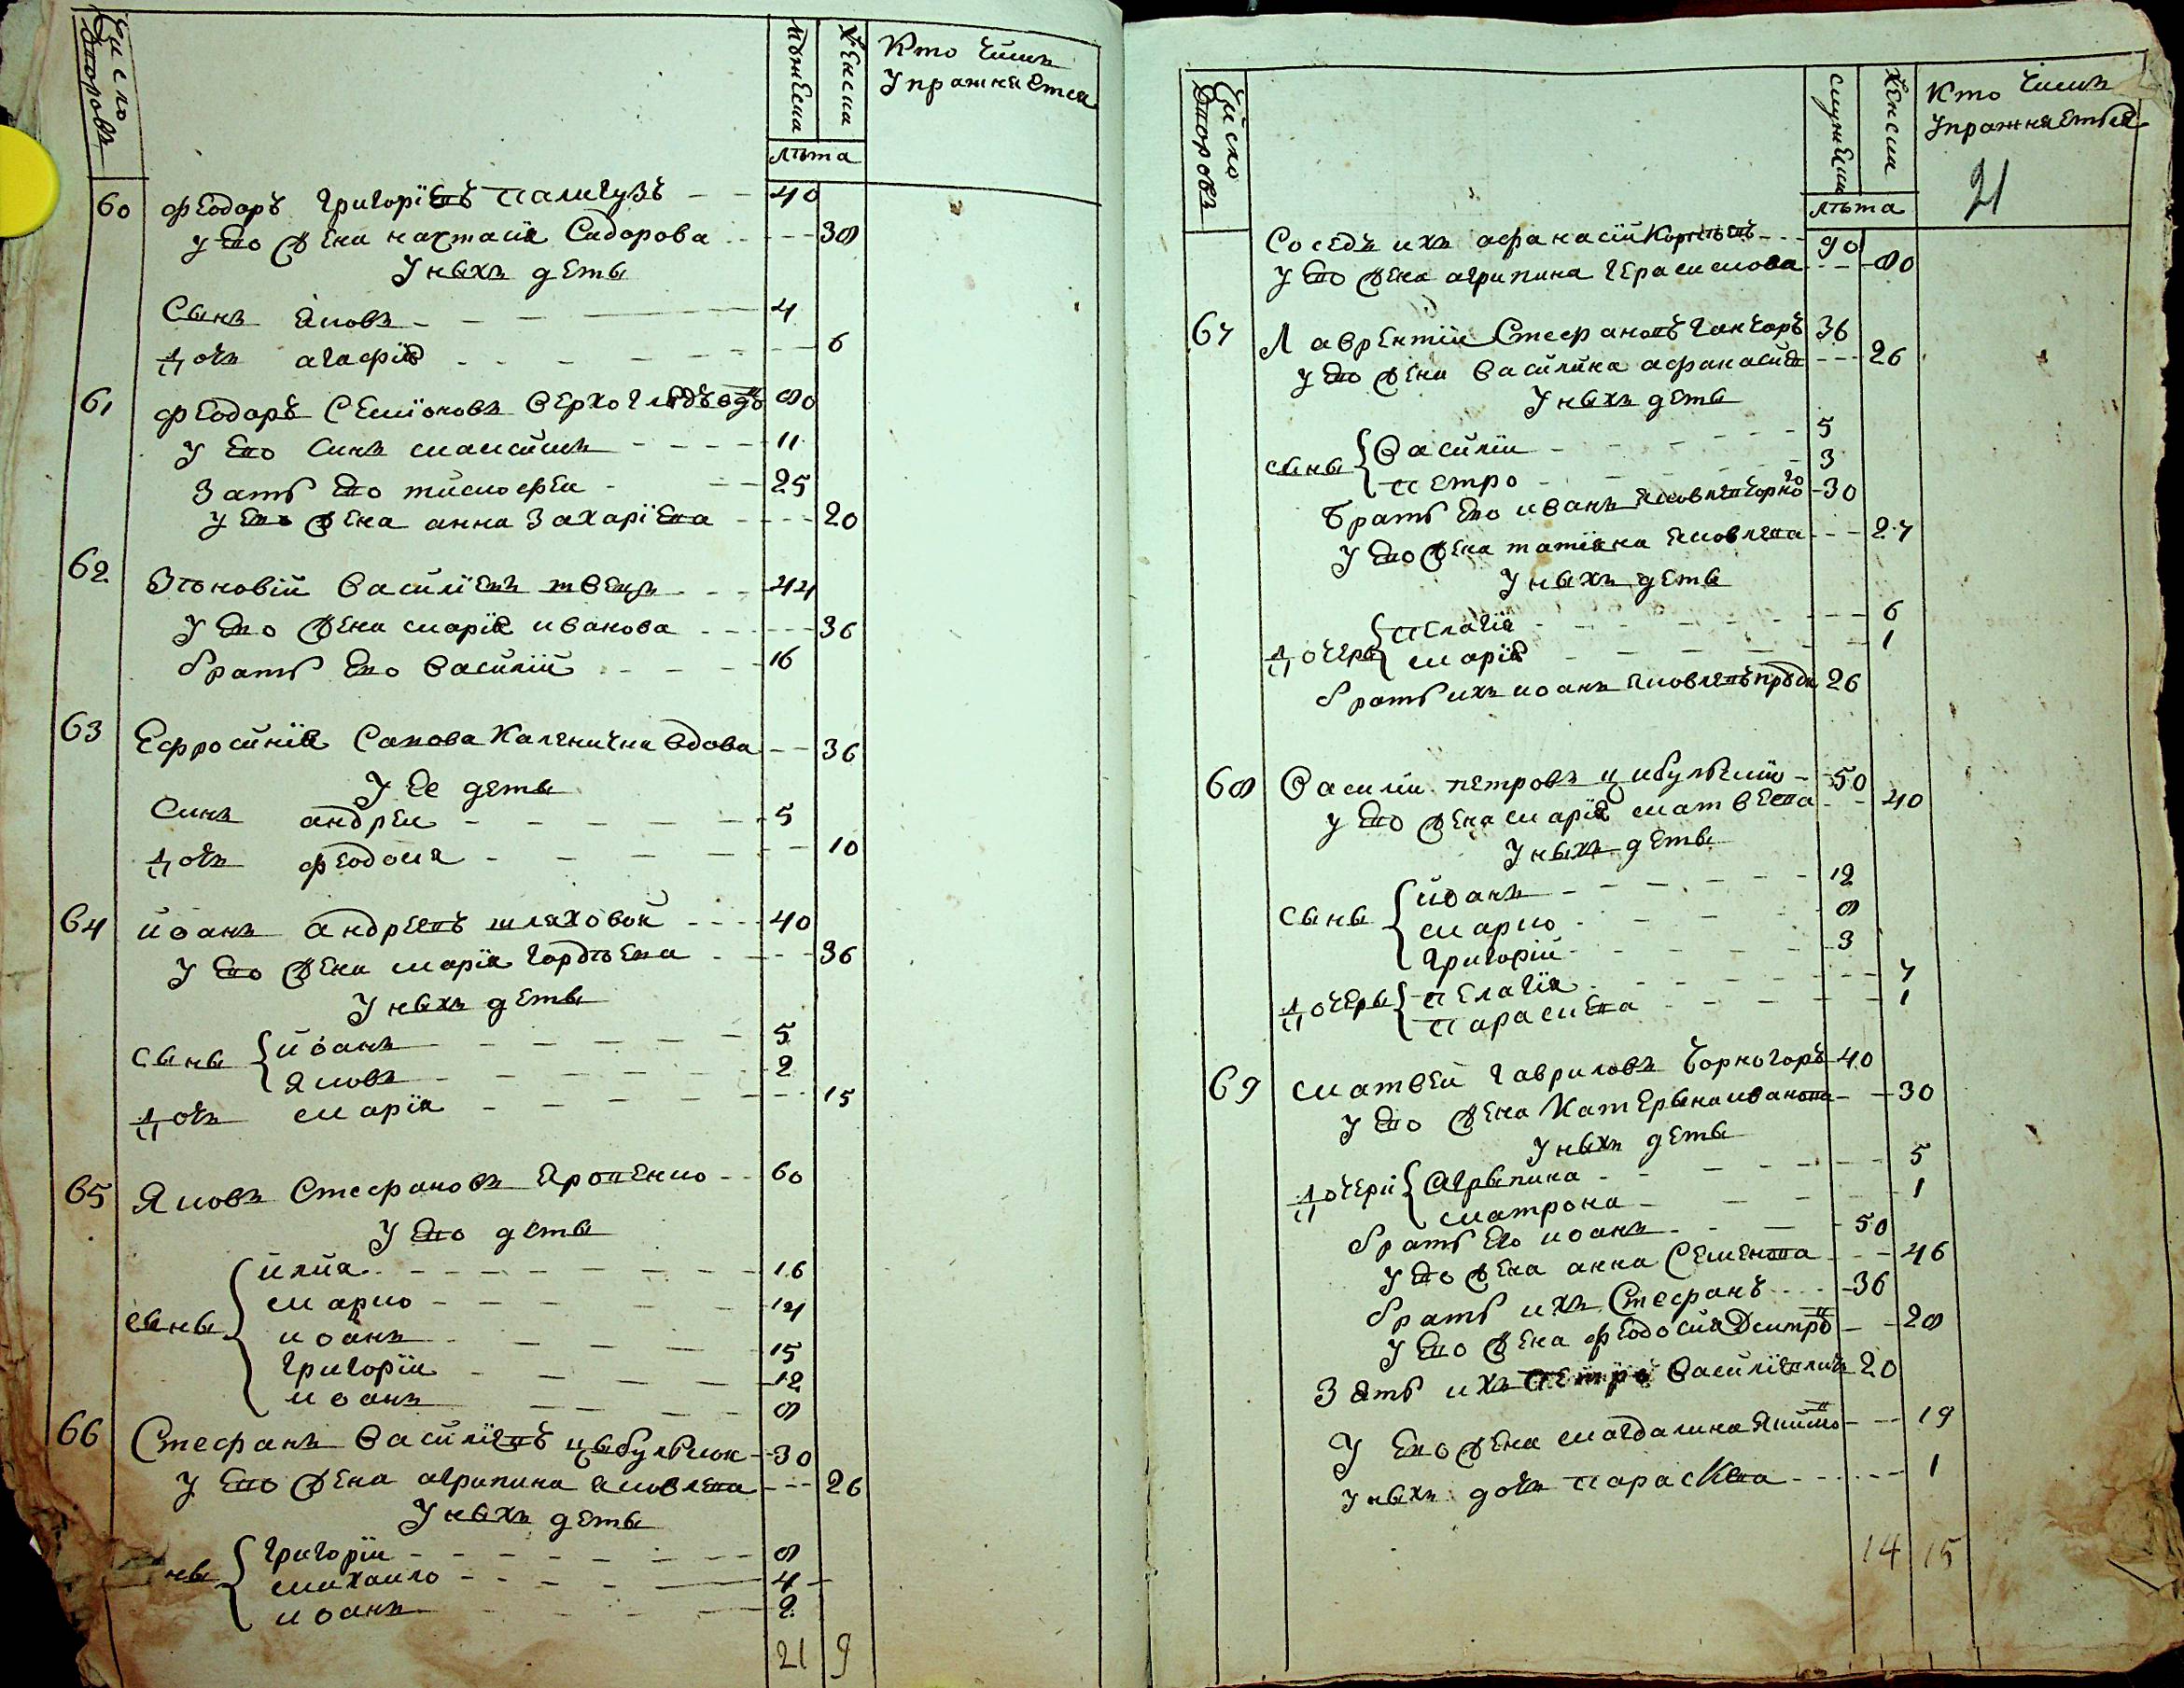 Число дворовъ
мужеска
женска
Кто чимъ
Упражняется
лѣта
60 Феодоръ Григоріевъ Палигузъ 40
у его жена Настасія Сидорова 38
У ныхъ дети
Сынъ Яковъ 4
Дочь Агафія 6
61 Феодоръ Семіоновъ Верхоглядъ вдов 80
у его синъ Максимъ 11
Зять его Тимофеи 25
у его жена Анна Захаріева 20
62 Зѣновій Василіевъ швецъ 44
у его жена Марія Иванова 36
братъ его Василій 16
63 Ефросинія Савова Каленична вдова 36
У ее дети
Синъ Андреи 5
Дочь Феодося 10
64 Йоанъ Андреевъ Шляховой 40
У его жена Марія Гордѣева 36
У ныхъ дети
Сыны Йоанъ 5
Яковъ 2
Дочь Марія 15
65 Яковъ Стефановъ Яровенко 60
У его дети
Сыны Илия 16
Марко 14
Иоанъ 15
Григоріи 12
Иоанъ 8
66 Стефанъ Василіевъ Цыбулькин 30
у его жена Агрипина Яковлева 26
У ныхъ дети
ны Григоріи 8
Михаило 4
Иоанъ 2
21 9
Число дворовъ
мужеска
женска
Кто чимъ
Упражняетъся
21
лѣта
Соседъ ихъ Афанасій Корнѣевъ 90
у его жена Агрипина Герасимова 80
67 Лаврентіи Стефановъ Ганчаръ 36
у его жена Василина Афанасиев 26
У ныхъ дети
сыны Василіи 5
Петро 3
Братъ его Иванъ Яковлевъ 30
у его жена Татіяна Яковлева 27
У ныхъ дети
Дочеры Пелагія 6
Марія 1
братъ ихъ Иоанъ Яковлевъ 26
68 Василіи Петровъ Цибулькин 50
у его жена Марія Матвеева 40
У ныхъ дети
Сыны Йоанъ 12
Марко 8
Григоріи 3
Дочеры Пелагія 7
Парасиева 1
69 Матвей Гавриловъ Чорногоръ 40
у его жена Катерына Иванова 30
У ныхъ дети
Дочери Агрыпина 5
Матрона 1
братъ его Иоанъ 50
у его жена Анна Семенова 46
братъ ихъ Стефанъ 36
у его жена Феодосия Дмитро 28
Зять ихъ Петро Василіевичъ 20
У его жена Магдалина Якимо 19
у ныхъ дочь Параскева 1
14 15